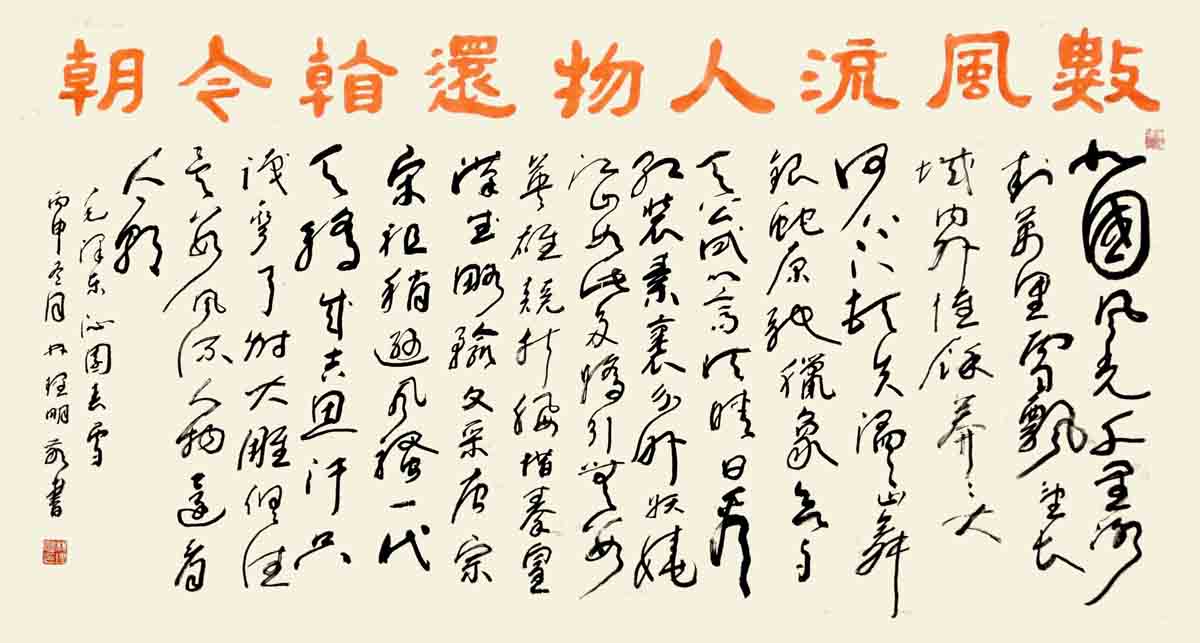 數風流人物還看今朝
北國風光千里冰
封萬里雪飄望長
城內外惟餘莽々大
河上下頓失滔々山舞
銀蛇原馳獵象欲與
天公試比高須晴日看
紅裝素裹分外妖嬈
江山如此多嬌引無數
英雄競折腰惜秦皇
漢武略輸文采唐宗
宋祖稍遜風騷一代
天驕成吉思汗只
識彎弓射大雕俱往
矣數風流人物還看
今朝
毛澤東沁園春雪
丙申冬月林理明書